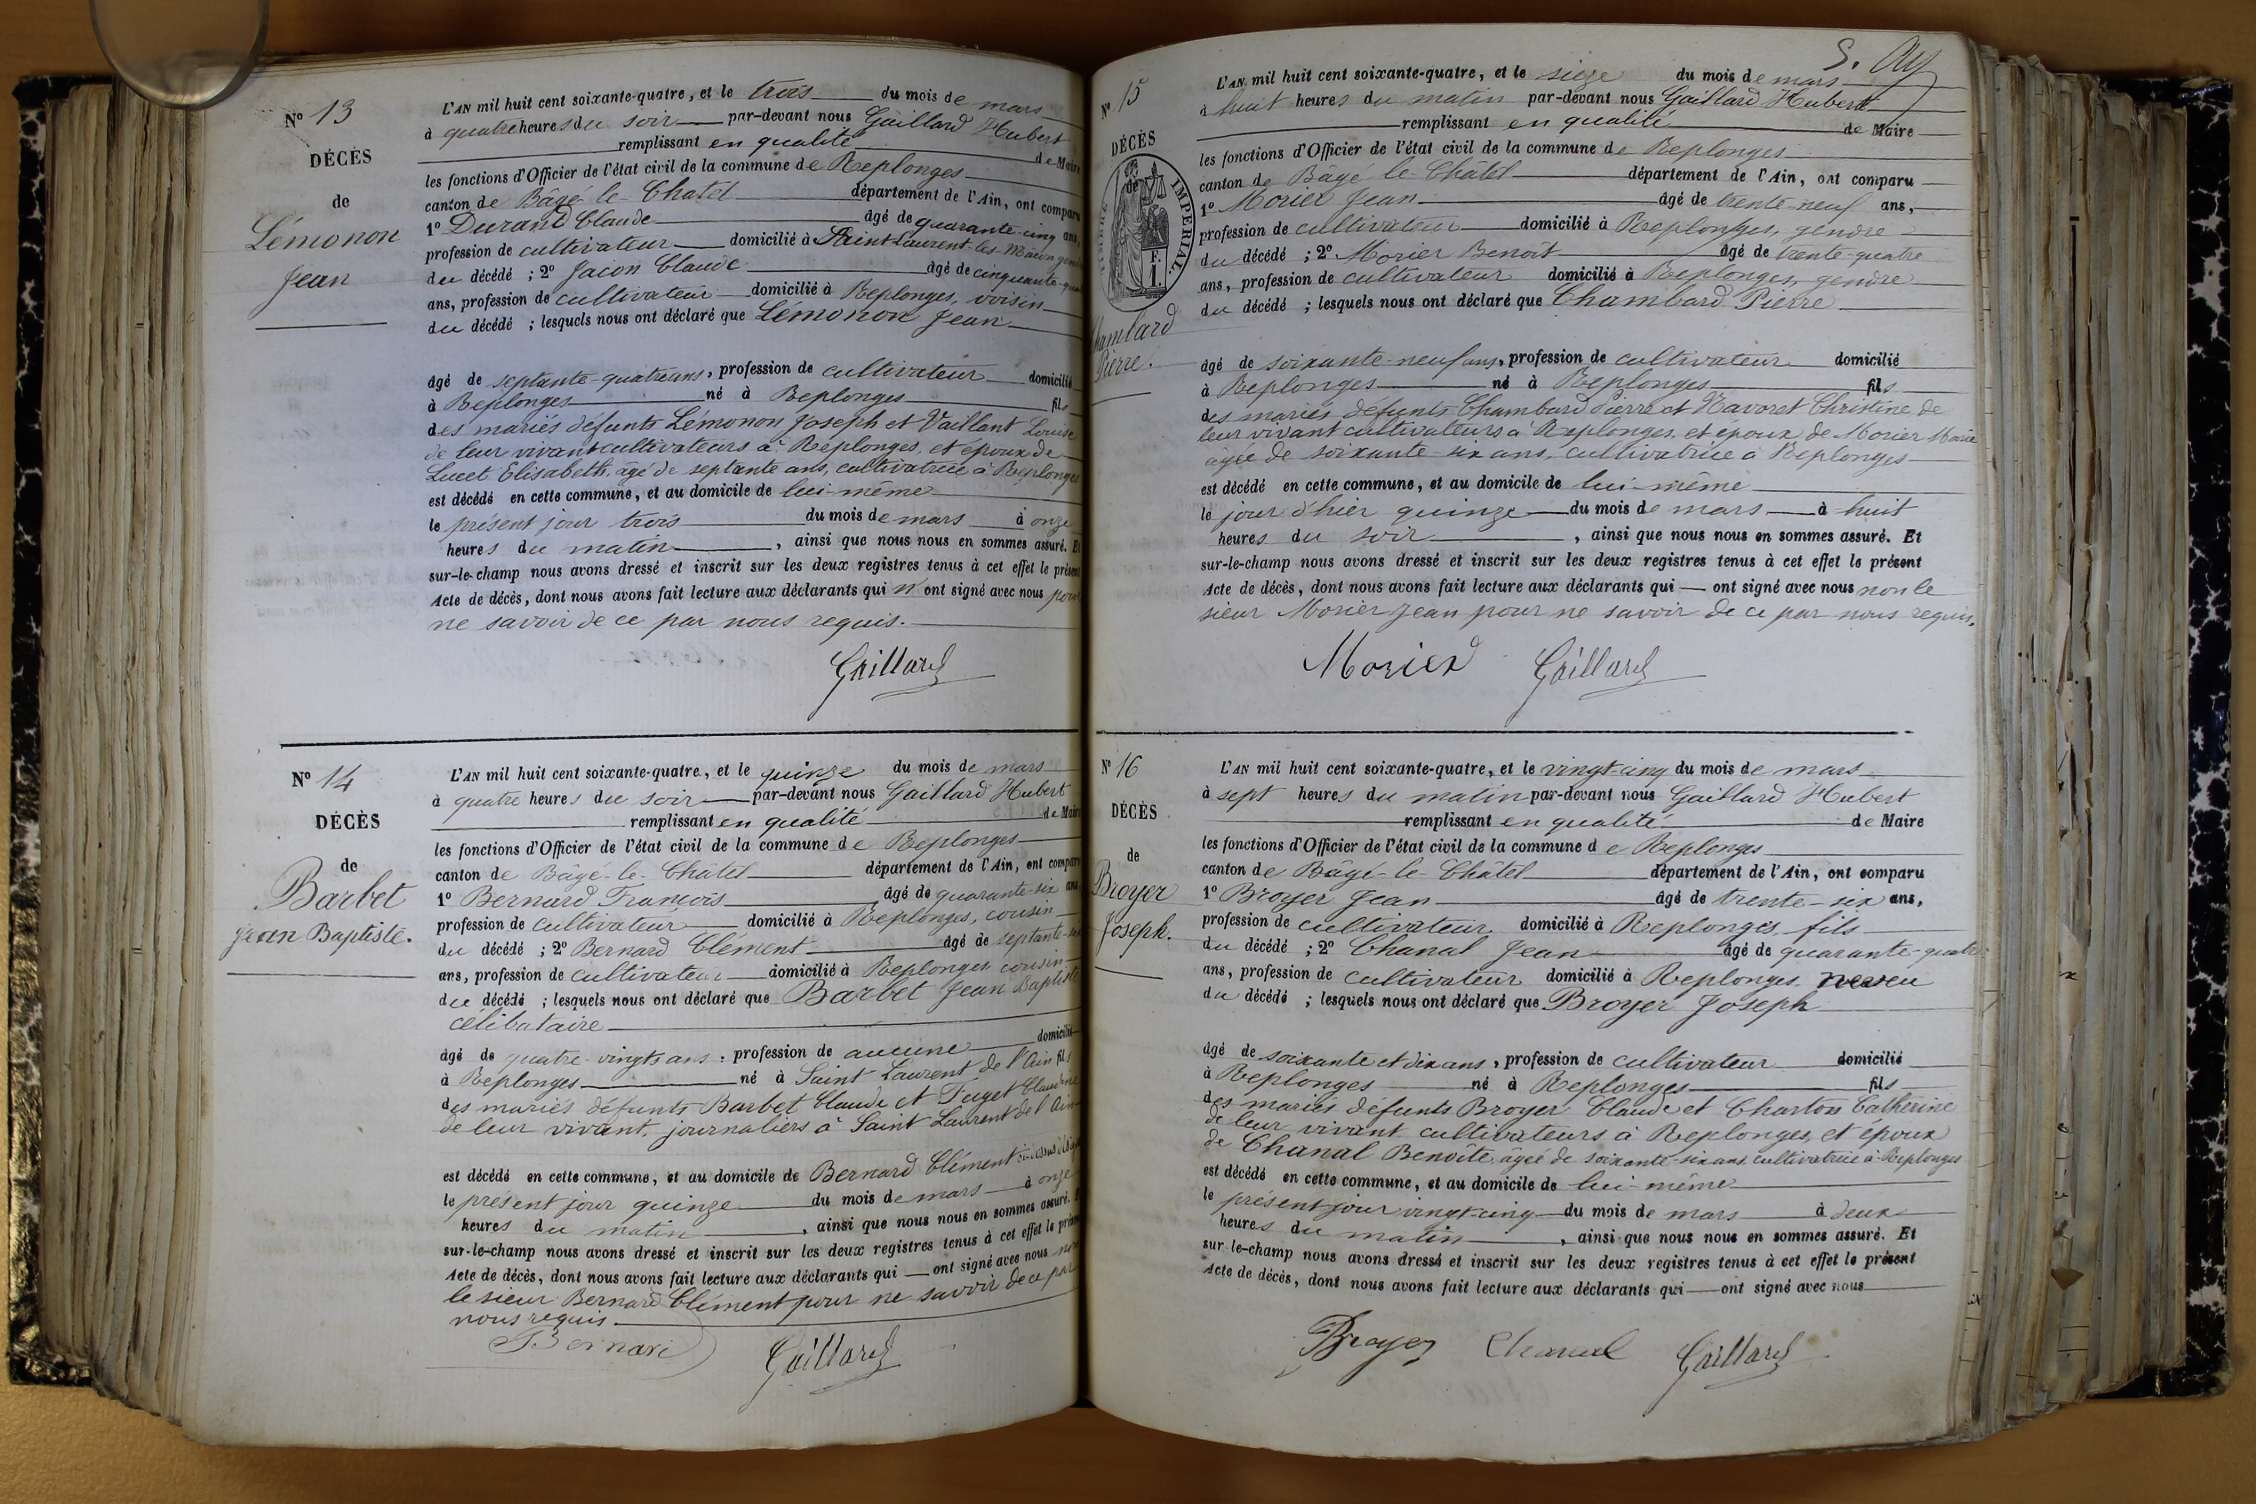 N° 13
DÉCÈS
de
Lémonon
Jean
L'AN mil huit cent soixante-quatre, et le trois du mois de mars
à quatre heures du soir par-devant nous Gaillard Hubert
remplissant en qualité de Maire
les fonctions d'Officier de l'état civil de la commune de Replonges
canton de Bâgé-le-Chatel département de l'Ain, ont comparu
1° Durand Claude âgé de quarante-cinq ans,
profession de cultivateur domicilié à Saint-Laurent-les-Mâcon
du décédé ; 2° Jacon Claude âgé de cinquante
ans, profession de cultivateur domicilié à Replonges, voisin
du décédé ; lesquels nous ont déclaré que Lémonon Jean
âgé de septante-quatre ans, profession de cultivateur domicilié
à Replonges né à Replonges fils
des mariés défunts Lémonon Joseph et Vaillant Louise
de leur vivant cultivateurs à Replonges, et époux de
Lucet Elisabeth, âgé de septante ans, cultivatrice à Replonges
est décédé en cette commune, et au domicile de lui-même
le présent jour trois du mois de mars à onze
heures du matin, ainsi que nous nous en sommes assuré. Et
sur-le-champ nous avons dressé et inscrit sur les deux registres tenus à cet effet le présent
Acte de décès, dont nous avons fait lecture aux déclarants qui n'ont signé avec nous pour
ne savoir de ce par nous requis.
Gaillard
N° 14
DÉCÈS
de
Barbet
Jean Baptiste.
L'AN mil huit cent soixante-quatre, et le quinze du mois de mars
à quatre heures du soir par-devant nous Gaillard Hubert
remplissant en qualité de Maire
les fonctions d'Officier de l'état civil de la commune de Replonges
canton de Bâgé-le-Châtel département de l'Ain, ont comparu
1° Bernard François âgé de quarante-six ans,
profession de cultivateur domicilié à Replonges, cousin
du décédé ; 2° Bernard Clément âgé de septante
ans, profession de cultivateur domicilié à Replonges cousin
du décédé ; lesquels nous ont déclaré que Barbet Jean Baptiste
célibataire
âgé de quatre-vingts ans, profession de aucune domicilié
à Replonges né à Saint Laurent de l'Ain fils
des mariés défunts Barbet Claude et Fuget Claudine
de leur vivant, journaliers à Saint Laurent de l'Ain
est décédé en cette commune, et au domicile de Bernard Clément
le présent jour quinze du mois de mars à onze
heures du matin, ainsi que nous nous en sommes assuré. Et
sur-le-champ nous avons dressé et inscrit sur les deux registres tenus à cet effet le présent
Acte de décès, dont nous avons fait lecture aux déclarants qui ont signé avec nous non
le sieur Bernard Clément pour ne savoir de ce par
nous requis
Bernard Gaillard
N° 15
DÉCÈS
de
IMPERIAL.
Chambard
Pierre.
L'AN mil huit cent soixante-quatre, et le seize du mois de mars
à huit heures du matin par-devant nous Gaillard Hubert
remplissant en qualité de Maire
les fonctions d'Officier de l'état civil de la commune de Replonges
canton de Bâgé-le-Châtel département de l'Ain, ont comparu
1° Morier Jean âgé de trente-neuf ans,
profession de cultivateur domicilié à Replonges, gendre
du décédé ; 2° Morier Benoit âgé de trente-quatre
ans, profession de cultivateur domicilié à Replonges, gendre
du décédé ; lesquels nous ont déclaré que Chambard Pierre
âgé de soixante-neuf ans, profession de cultivateur domicilié
à Replonges né à Replonges fils
des mariés défunts Chambard Pierre et Navoret Christine de
leur vivant cultivateurs à Replonges, et époux de Morier Marie
âgée de soixante-six ans, cultivatrice à Replonges
est décédé en cette commune, et au domicile de lui-même
le jour d'hier quinze du mois de mars à huit
heures du soir, ainsi que nous nous en sommes assuré. Et
sur-le-champ nous avons dressé et inscrit sur les deux registres tenus à cet effet le présent
Acte de décès, dont nous avons fait lecture aux déclarants qui ont signé avec nous non le
sieur Morier Jean pour ne savoir de ce par nous requis.
Morier Gaillard
N° 16
DÉCÈS
de
Broyer
Joseph.
L'AN mil huit cent soixante-quatre, et le vingt-cinq du mois de mars
à sept heures du matin par-devant nous Gaillard Hubert
remplissant en qualité de Maire
les fonctions d'Officier de l'état civil de la commune de Replonges
canton de Bâgé-le-Châtel département de l'Ain, ont comparu
1° Broyer Jean âgé de trente-six ans,
profession de cultivateur domicilié à Replonges, fils
du décédé ; 2° Chanal Jean âgé de quarante-quatre
ans, profession de cultivateur domicilié à Replonges neveu
du décédé ; lesquels nous ont déclaré que Broyer Joseph
âgé de soixante et dix ans, profession de cultivateur domicilié
à Replonges né à Replonges fils
des mariés défunts Broyer Claude et Charton Catherine
de leur vivant cultivateurs à Replonges, et époux
de Chanal Benoîte, âgée de soixante-six ans cultivatrice à Replonges
est décédé en cette commune, et au domicile de lui-même
le présent jour vingt-cinq du mois de mars à deux
heures du matin, ainsi que nous nous en sommes assuré. Et
sur-le-champ nous avons dressé et inscrit sur les deux registres tenus à cet effet le présent
Acte de décès, dont nous avons fait lecture aux déclarants qui ont signé avec nous
Broyer Chanal Gaillard